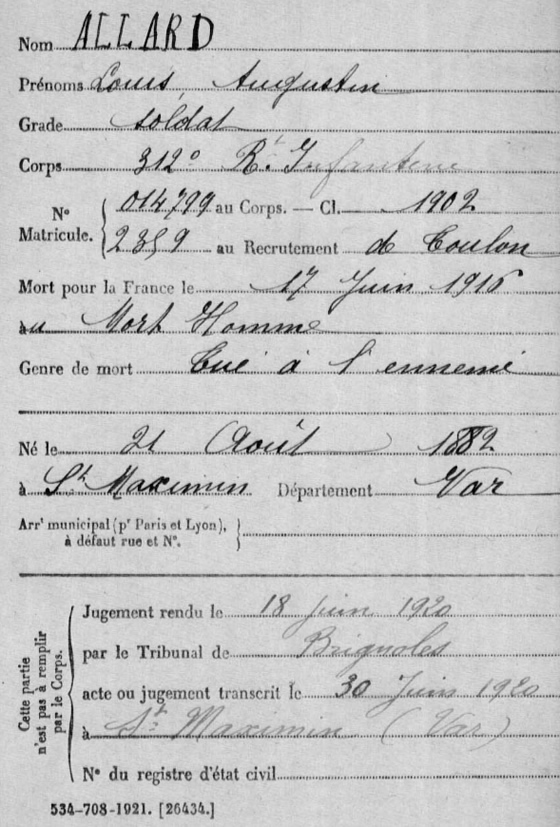 Nom ALLARD
Prénoms Louis, Augustin
Grade soldat
Corps 312º Rt. Infanterie
Nº Matricule. { 014799 au Corps. — Cl. 1902
2359 au Recrutement de Toulon
Mort pour la France le 17 Juin 1916
au Mort Homme
Genre de mort Tué à l'ennemi
Né le 21 Août 1882
à St Maximin Département Var
Arrt municipal (pr Paris et Lyon), }
à défaut rue et Nº.
Cette partie
n'est pas à remplir
par le Corps.
Jugement rendu le 18 juin 1920
par le Tribunal de Brignoles
acte ou jugement transcrit le 30 Juin 1920
à St. Maximin (Var)
Nº du registre d'état civil
534-708-1921. [26434.]